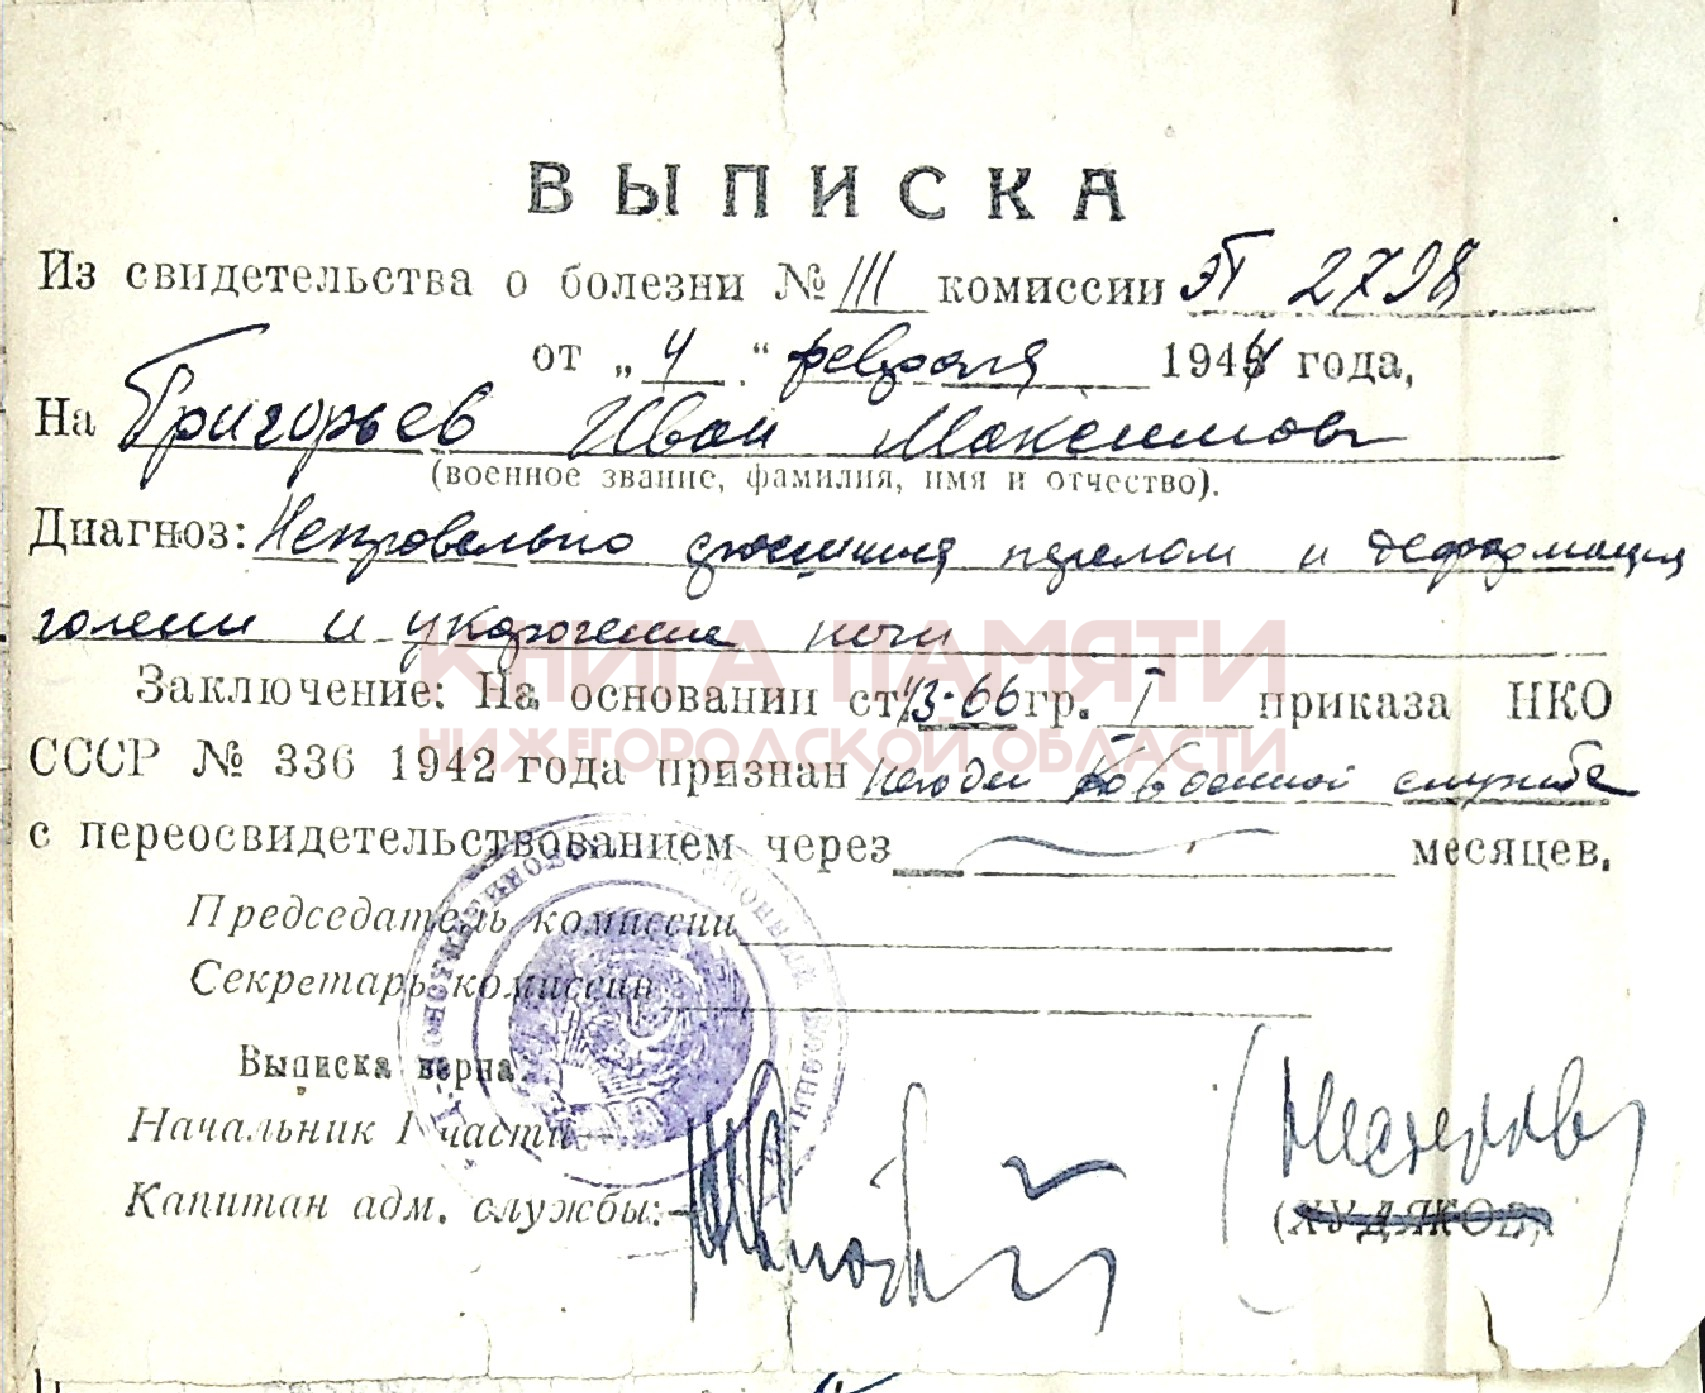 ВЫПИСКА
Из свидетельства о болезни № III комиссии ЭГ 2798
от „4“ февраля 1944 года,
На Григорьев Иван Максимов
(военное звание, фамилия, имя и отчество).
Диагноз: Неправельно перелом и деформация
голени и укорочение ноги
КНИГА ПАМЯТИ
Заключение: На основании ст. 43-66 гр. I приказа НКО
НИЖЕГОРОДСКОЙ ОБЛАСТИ
СССР № 336 1942 года признан негоден к военной службе
с переосвидетельствованием через — месяцев.
Председатель комиссии
Секретарь комиссии
Выписка верна:
Начальник 1 части
Капитан адм. службы:
(ХУДЯКОВ)